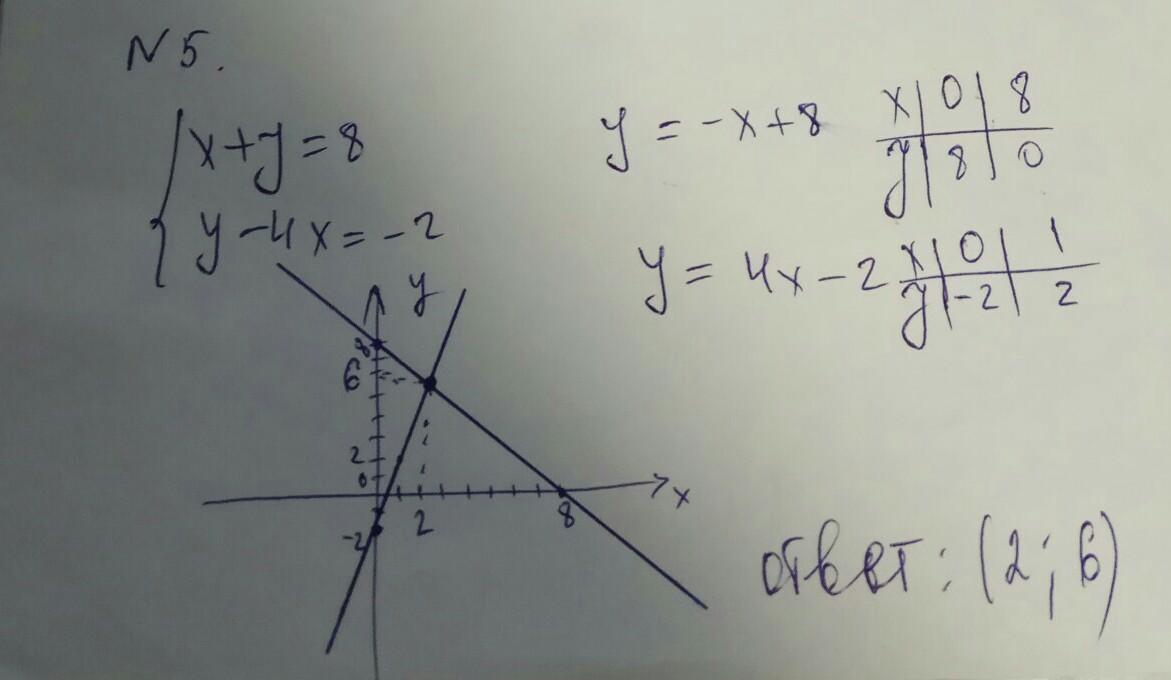 N 5.
x+y=8
y-4x=-2
y = -x+8
x | 0 | 8
y | 8 | 0
y = 4x-2
x | 0 | 1
y | -2 | 2
y
8
6
2
0
-2
2
8
x
ответ: (2; 6)